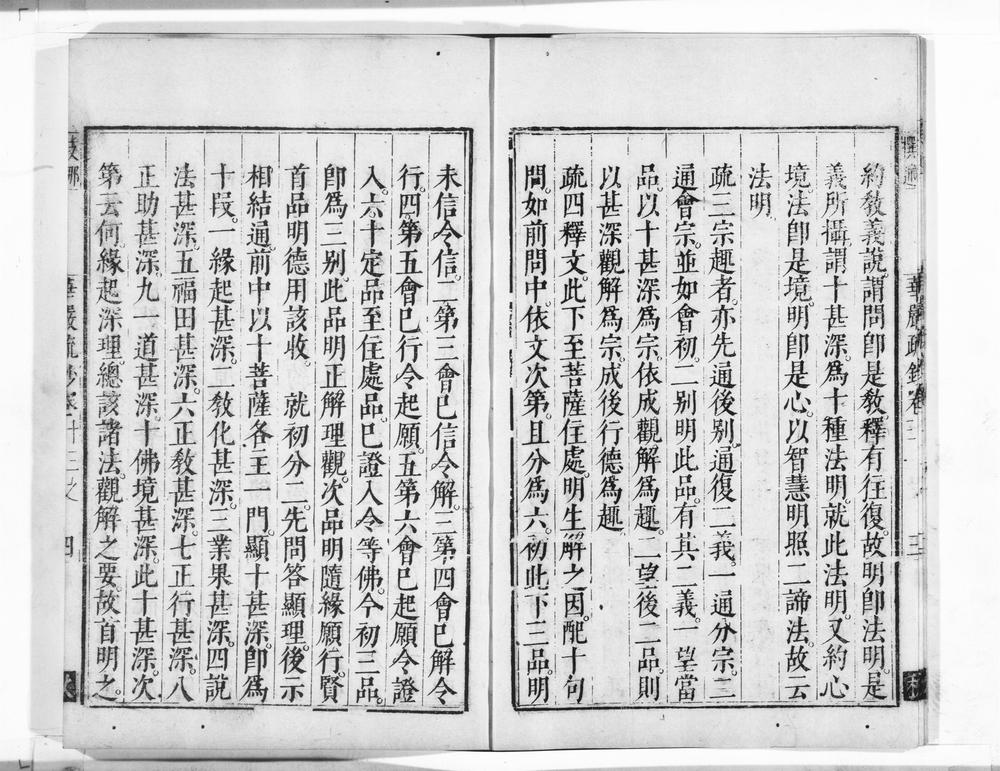 約教義說。謂問卽是教。釋有往復。故明卽法明。是
義所攝。謂十甚深。爲十種法明。就此法明。又約心
境。法卽是境。明卽是心。以智慧明照二諦法。故云
法明
疏三宗趣者。亦先通後別。通復二義。一通分宗。二
通會宗。並如會初。二別明此品。有其二義。一望當
品。以十甚深爲宗。依成觀解爲趣。二望後二品。則
以甚深觀解爲宗。成後行德爲趣
疏四釋文。此下至菩薩住處。明生解之因。配十句
問。如前問中。依文次第。且分爲六。初此下三品。明
未信令信。二第三會已信令解。三第四會已解令
行。四第五會已行令起願。五第六會已起願令證
入。六十定品至住處品。已證入令等佛。今初三品。
卽爲三別。此品明正解理觀。次品明隨緣願行。賢
首品明德用該收。 就初分二。先問答顯理。後示
相結通。前中以十菩薩各主一門。顯十甚深。卽爲
十段。一緣起甚深。二教化甚深。三業果甚深。四說
法甚深。五福田甚深。六正教甚深。七正行甚深。八
正助甚深。九一道甚深。十佛境甚深。此十甚深。次
第云何。緣起深理。總該諸法。觀解之要。故首明之。
華嚴疏鈔卷十三之 四